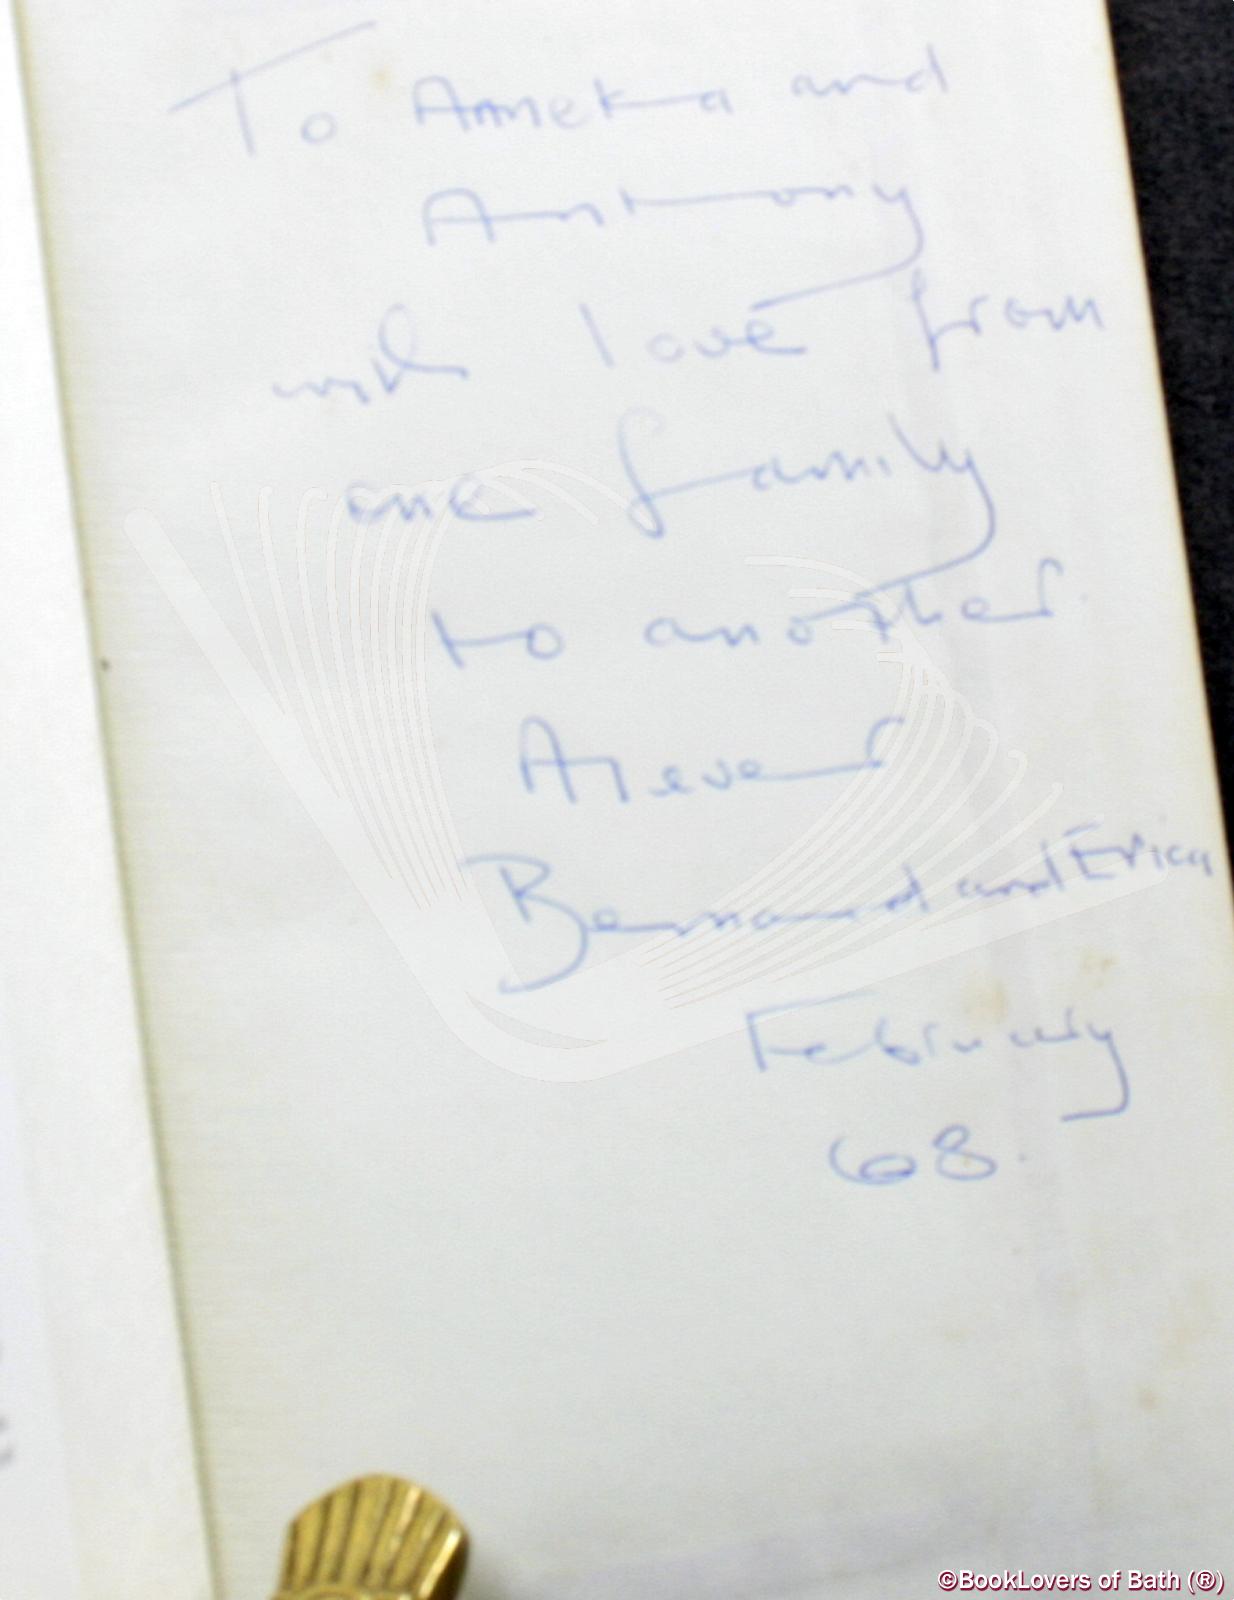 To Anneka and
Anthony
with love from
one family
to another
Bernard and Erica
February
68.
©BookLovers of Bath (®)